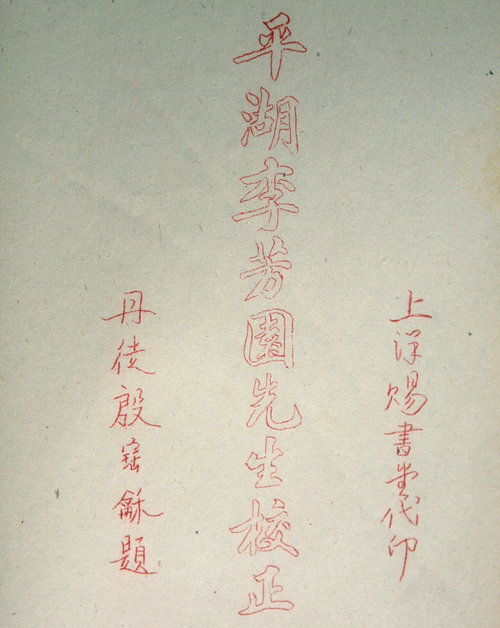 上洋賜書堂代印
平湖李芳園先生校正
丹徒殷寶龢題